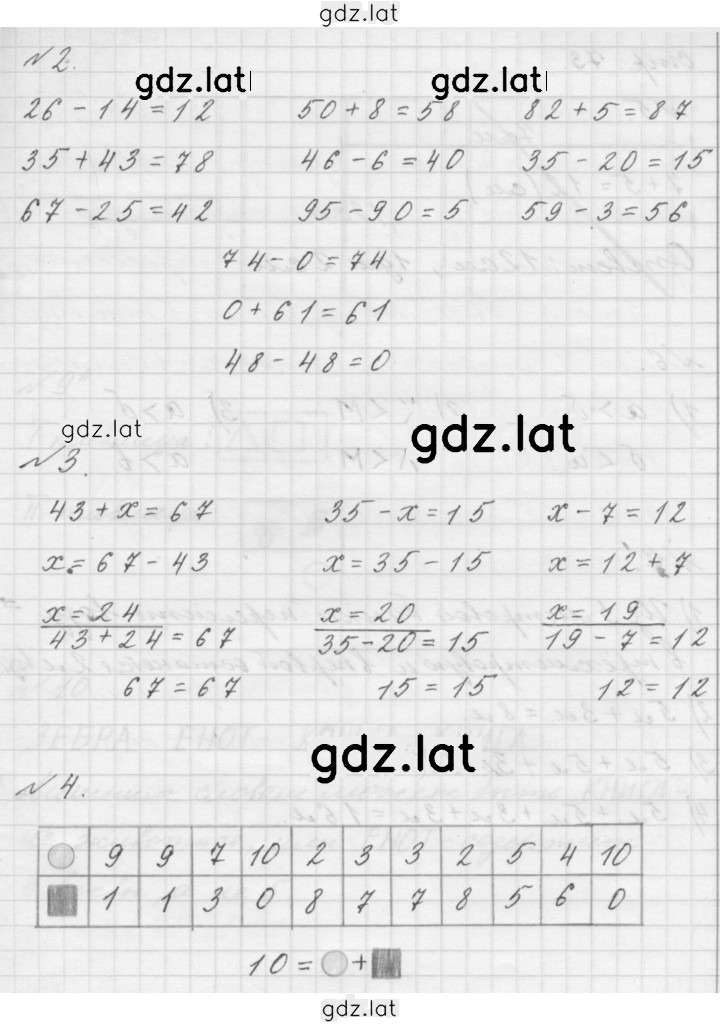 gdz.lat
№2.
gdz.lat gdz.lat
26 - 14 = 12 50 + 8 = 58 82 + 5 = 87
35 + 43 = 78 46 - 6 = 40 35 - 20 = 15
67 - 25 = 42 95 - 90 = 5 59 - 3 = 56
74 - 0 = 74
0 + 61 = 61
48 - 48 = 0
gdz.lat gdz.lat
№3.
43 + x = 67 35 - x = 15 x - 7 = 12
x = 67 - 43 x = 35 - 15 x = 12 + 7
x = 24 x = 20 x = 19
43 + 24 = 67 35 - 20 = 15 19 - 7 = 12
67 = 67 15 = 15 12 = 12
gdz.lat
№4.
9 9 7 10 2 3 3 2 5 4 10
1 1 3 0 8 7 7 8 5 6 0
10 = +
gdz.lat